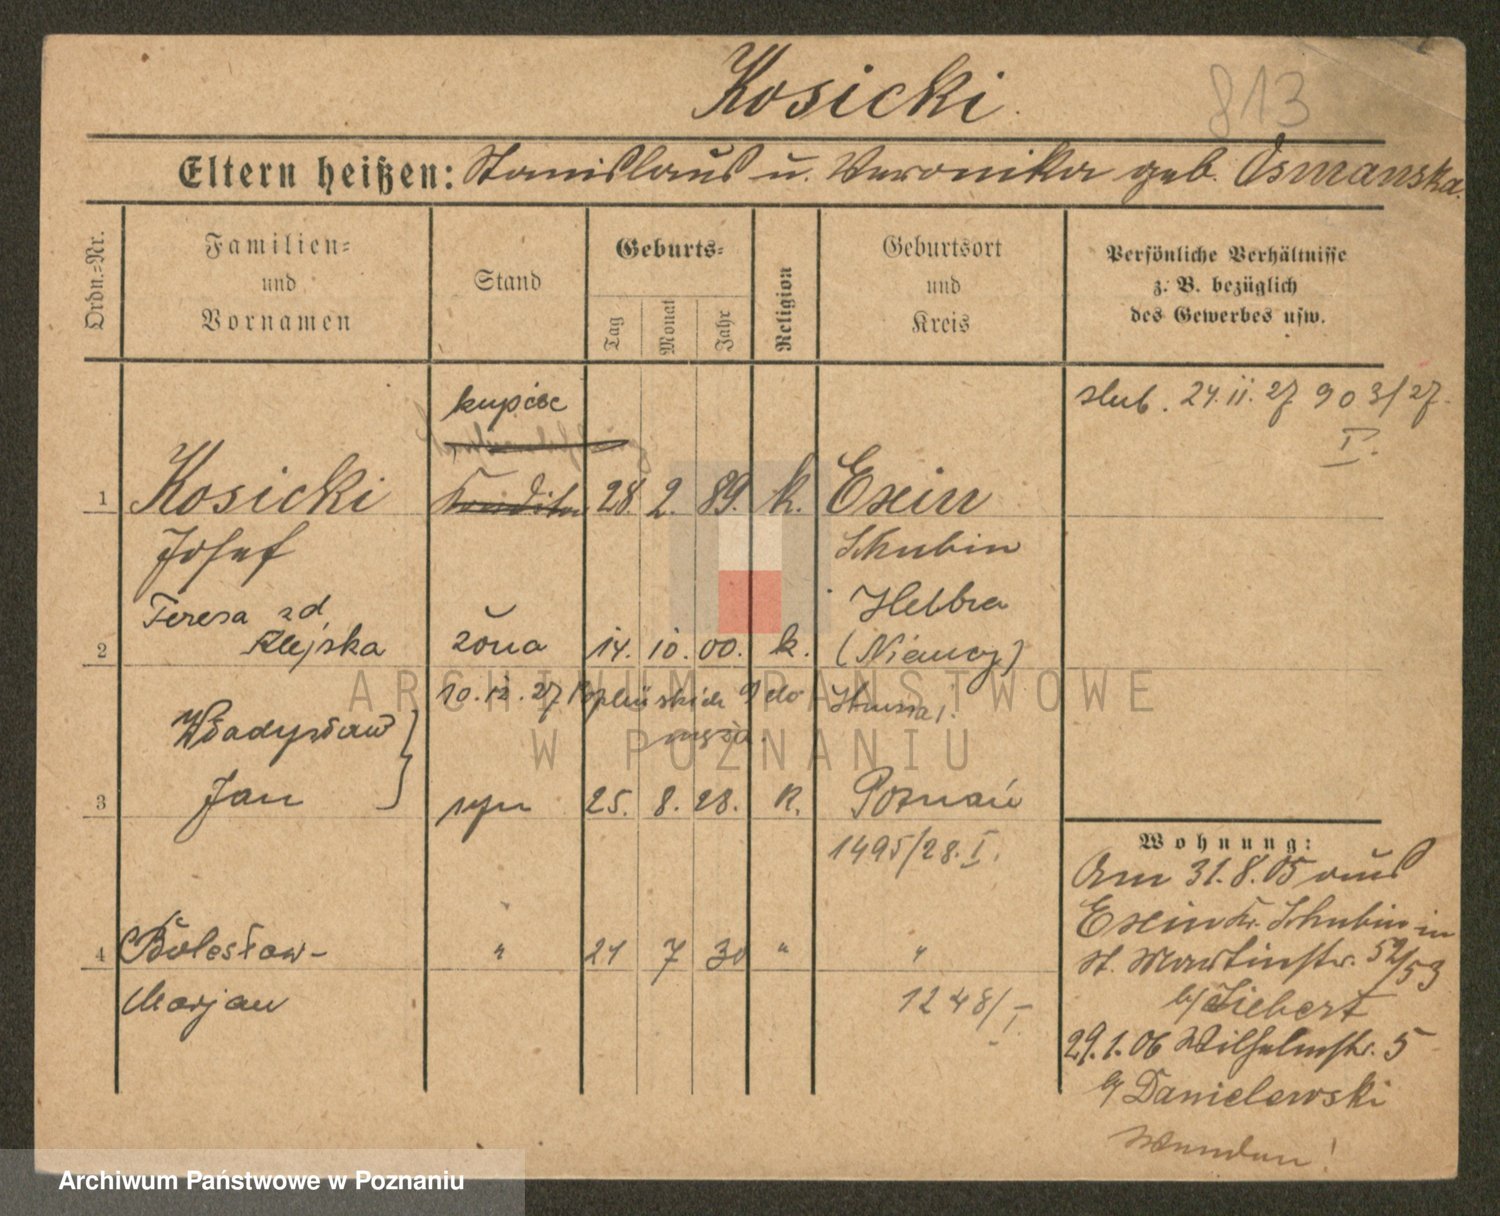 Kosicki
813
Eltern heißen: Stanislaus u. Veronika geb. Osmanska.
Ordn.=Nr.
Familien=
und
Vornamen
Stand
Geburts=
Tag
Monat
Jahr
Religion
Geburtsort
und
Kreis
Persönliche Verhältnisse
z. B. bezüglich
des Gewerbes usw.
kupiec
ślub. 24.11.27 903/27.
I.
1 Kosicki Konditor 28. 2. 89. k. Exin
Josef Schubin
Teresa zd Helbra
2 Elejska żona 14. 10. 00. k. (Niemcy)
10.12.27 do
męża.
Władysław
3 Jan syn 25. 8. 28. k. Poznań
1495/28. I.
4 Bolesław- " 21 7 30 " "
Marjan
1248/I.
Wohnung:
Am 31.8.05 aus
Exin Kr. Schubin in
St. Martinstr. 52/53
b/ Ziebert
29.1.06 Wilhelmstr. 5
b/ Danielewski
Wenden!
ARCHIWUM PAŃSTWOWE
W POZNANIU
Archiwum Państwowe w Poznaniu